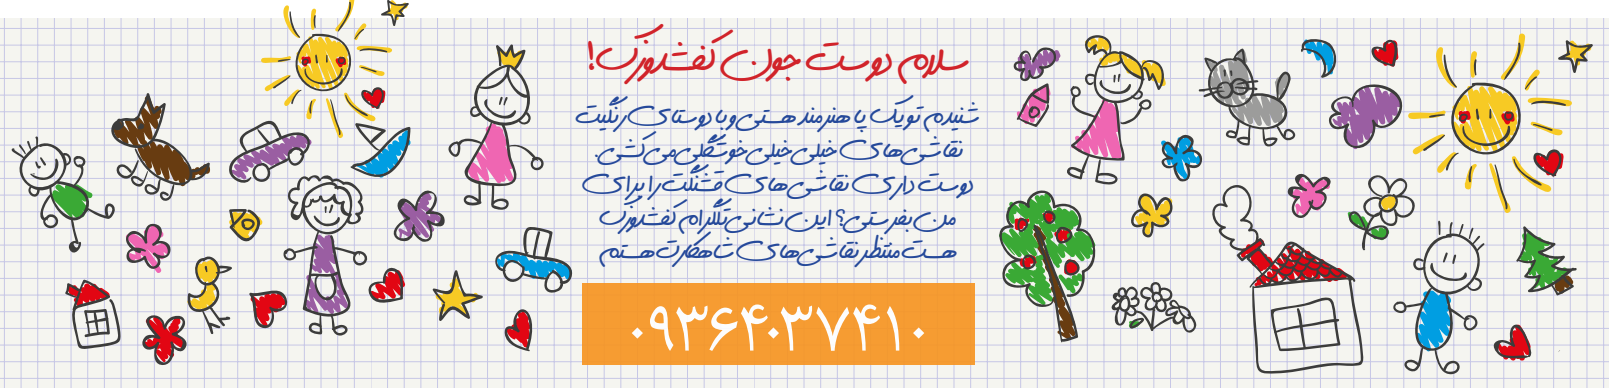 سلام دوست جون کفشدوزک!
شنیدم تو یک پا هنرمند هستی و با دوستای رنگیت
نقاشی‌های خیلی خیلی خوشگلی می‌کشی.
دوست داری نقاشی‌های قشنگت را برای
من بفرستی؟ این نشانی تلگرام کفشدوزک
هست منتظر نقاشی‌های شاهکارت هستم
۰۹۳۶۴۰۳۷۴۱۰